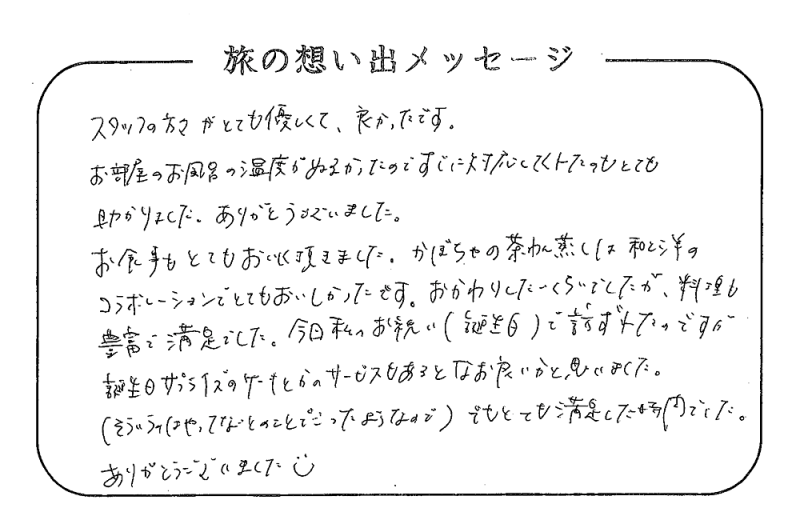 旅の想い出メッセージ
スタッフの方々がとても優しくて、良かったです。
お部屋のお風呂の温度がぬるかったのですぐに対応して下さったのもとても
助かりました。ありがとうございました。
お食事もとてもおいしく頂きました。かぼちゃの茶わん蒸しは和と洋の
コラボレーションでとてもおいしかったです。おかわりしたいくらいでしたが、料理も
豊富で満足でした。今日私のお祝い(誕生日)で訪ずれたのですが
誕生日サプライズのケーキとかのサービスもあるとなお良いかと思いました。
(そういうのはやってないとのことだったようなので)でもとても満足した時間でした。
ありがとうございました☺